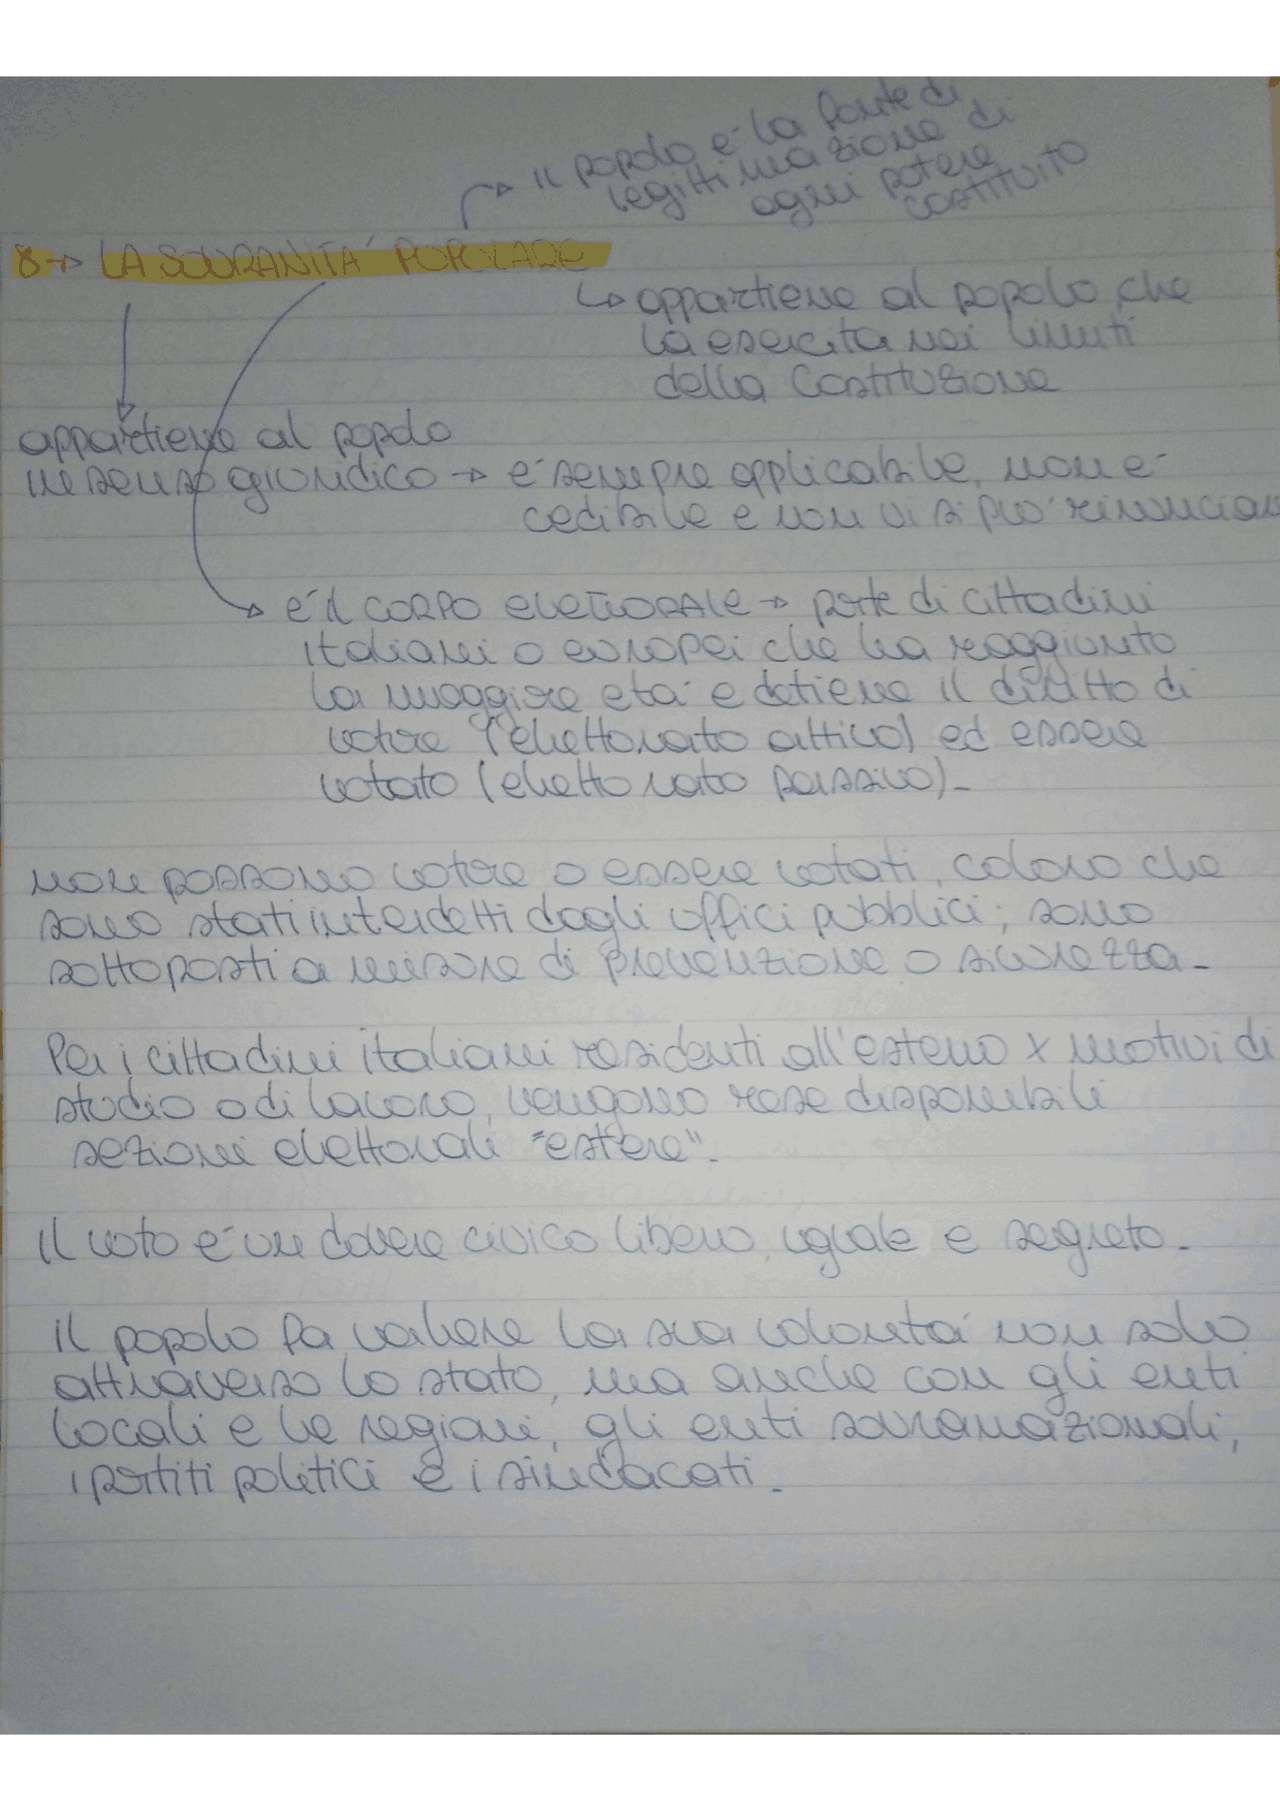 → Il popolo è la fonte di
legittimazione di
ogni potere
costituito
8→ LA SOVRANITÀ POPOLARE
↳ appartiene al popolo, che
la esercita nei limiti
della Costituzione
appartiene al popolo
in senso giuridico → è sempre applicabile, non è
cedibile e non vi si può rinunciare
→ è il CORPO ELETTORALE → parte di cittadini
italiani o europei che ha raggiunto
la maggiore età e detiene il diritto di
votare (elettorato attivo) ed essere
votato (elettorato passivo).
non possono votare o essere votati, coloro che
sono stati interdetti dagli uffici pubblici; sono
sottoposti a misure di prevenzione o sicurezza.
Per i cittadini italiani residenti all'estero x motivi di
studio o di lavoro, vengono rese disponibili
sezioni elettorali "estere".
Il voto è un dovere civico libero, uguale e segreto.
Il popolo fa valere la sua volontà non solo
attraverso lo stato, ma anche con gli enti
locali e le regioni, gli enti sovranazionali,
i partiti politici e i sindacati.